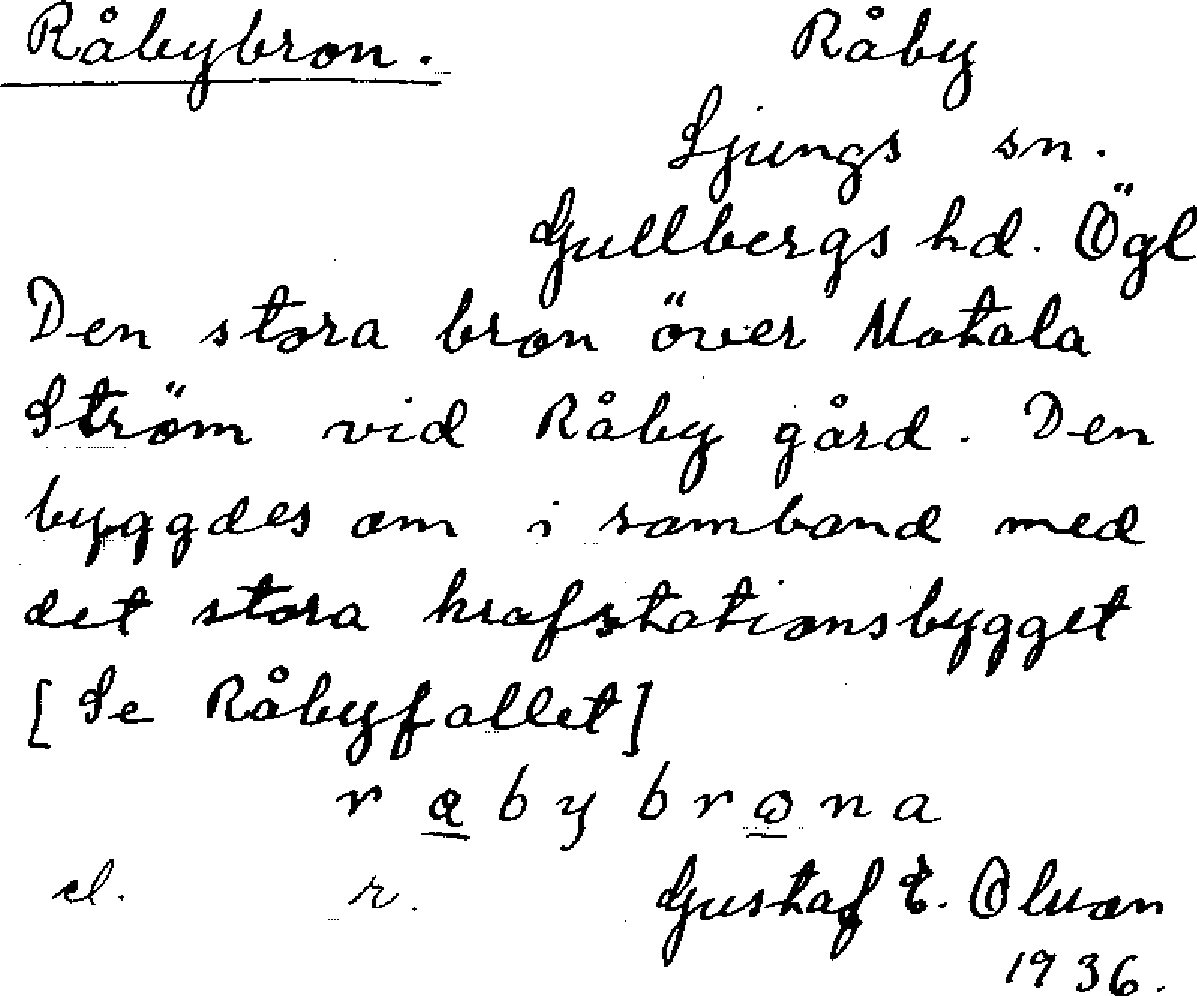 Råbybron. Råby
Ljungs sn.
Gullbergs hd. Ögl
Den stora bron över Motala
Ström vid Råby gård. Den
byggdes om i samband med
det stora krafstationsbygget
[Se Råbyfallet]
r a b y b r o n a
el. r. Gustaf E. Olson
1936.